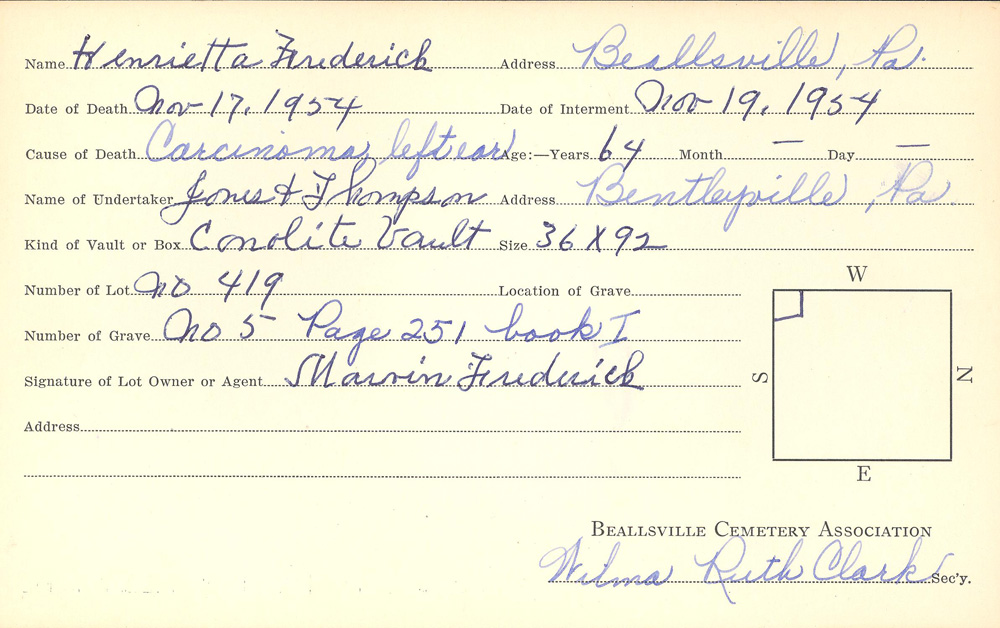 Name Henrietta Frederick Address Beallsville, Pa.
Date of Death Nov-17, 1954 Date of Interment Nov 19, 1954
Cause of Death Carcinoma left ear Age:—Years 64 Month — Day —
Name of Undertaker Jones & Thompson Address Bentleyville, Pa.
Kind of Vault or Box Conolite Vault Size 36 X 92
Number of Lot No 419 Location of Grave
Number of Grave No 5 Page 251 book I
Signature of Lot Owner or Agent Marvin Frederick
Address
W
S
N
E
Beallsville Cemetery Association
Wilma Ruth Clark Sec'y.